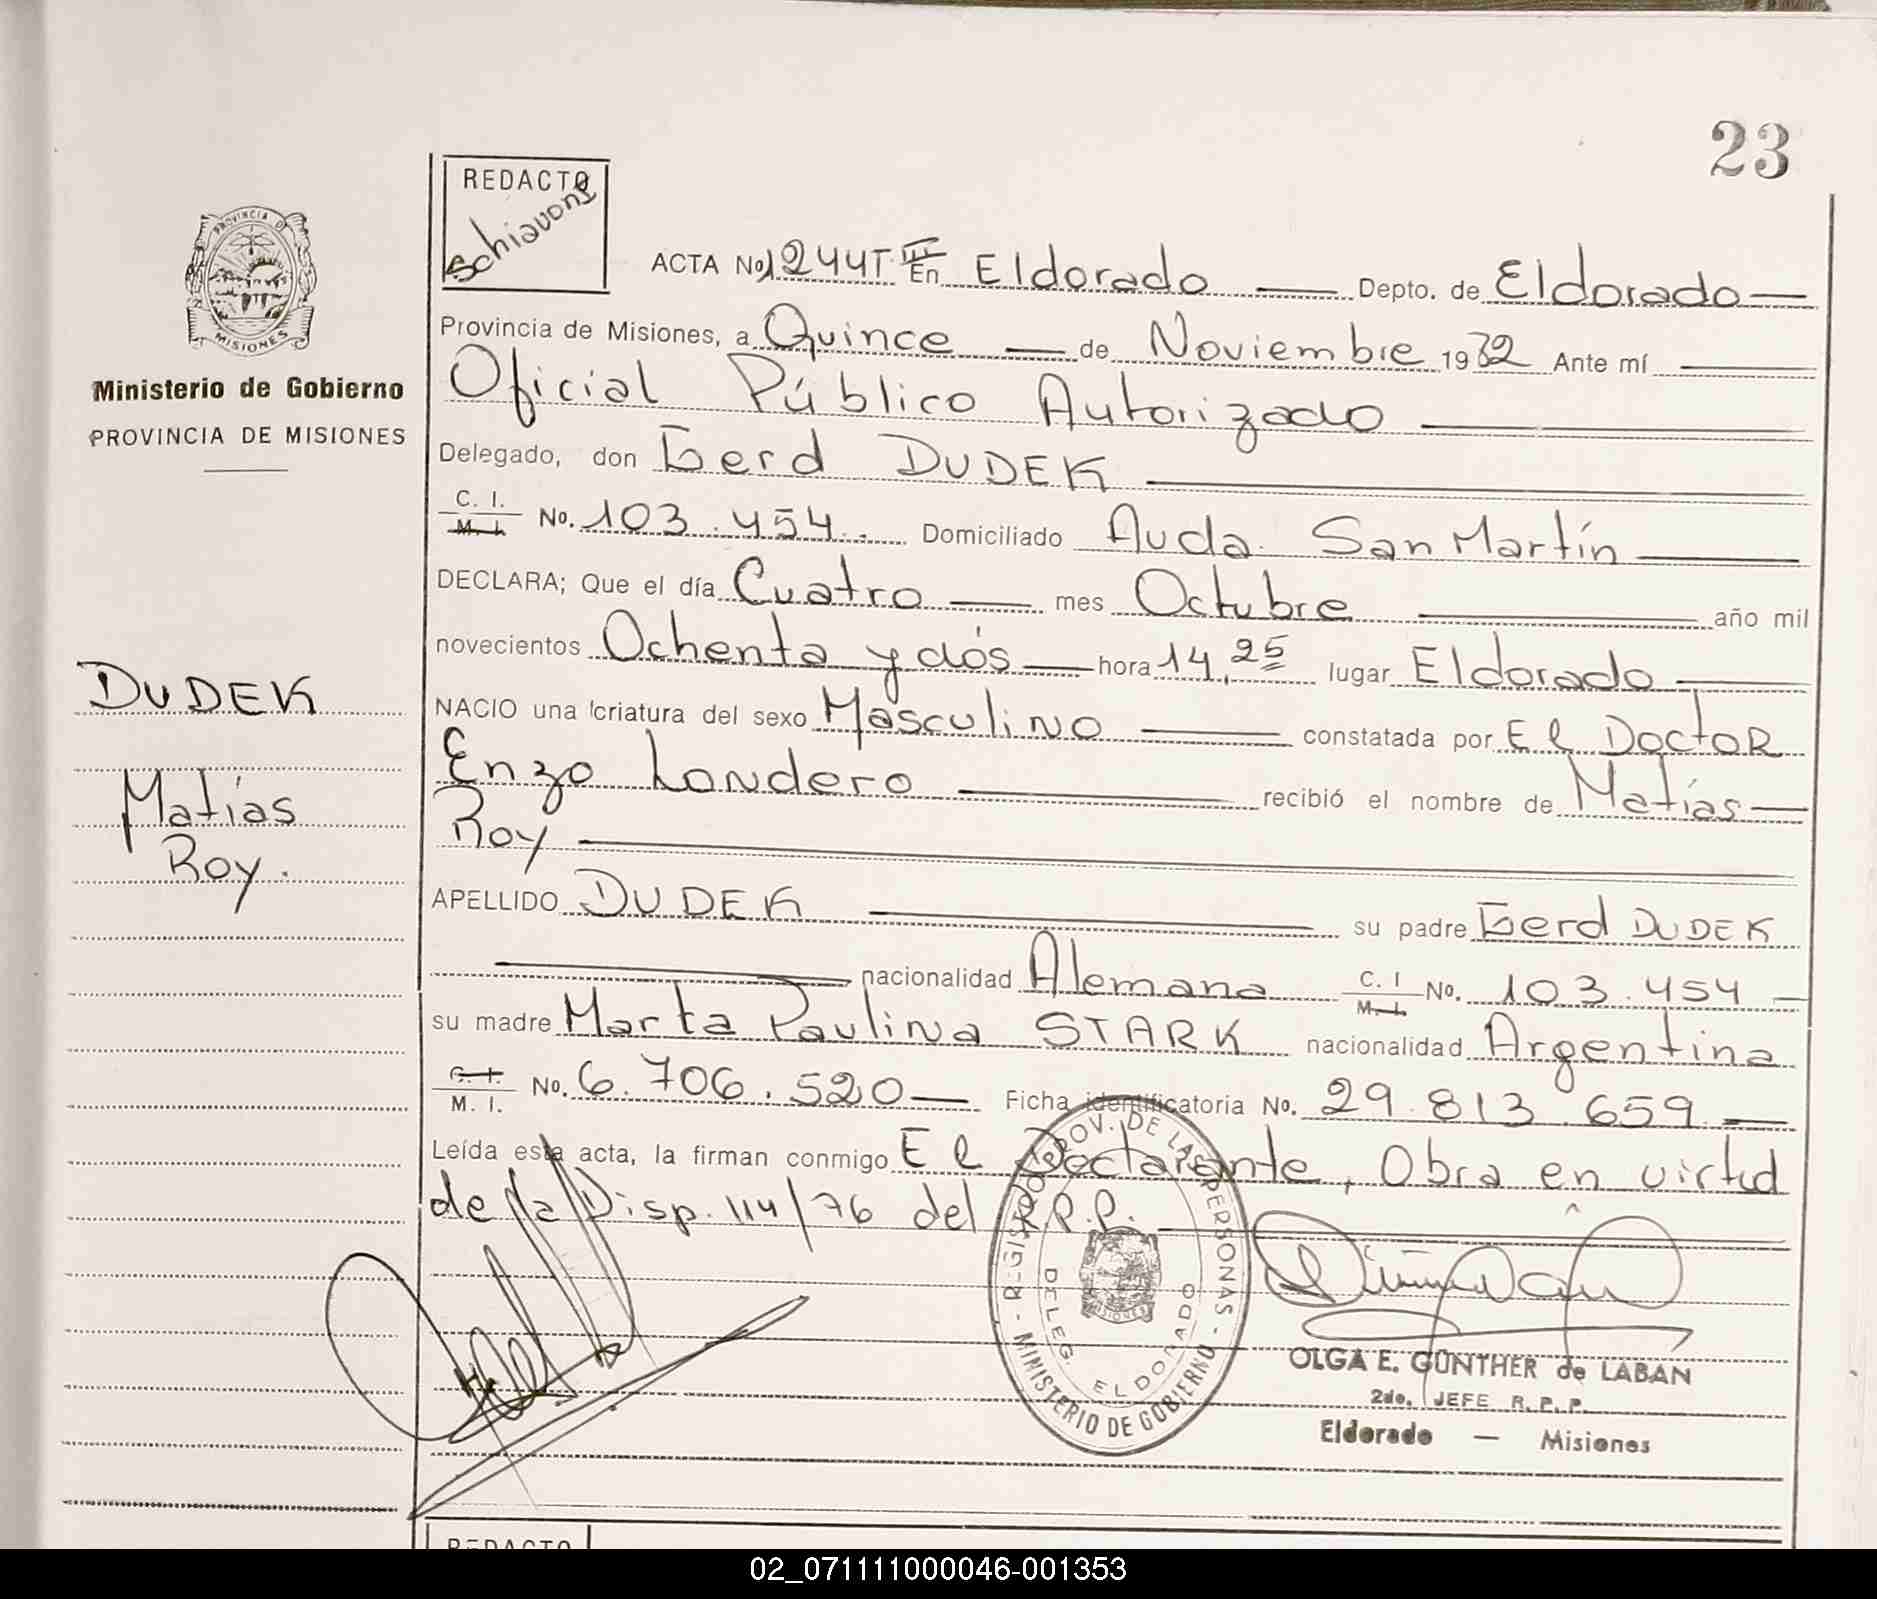 23
REDACTO
Schiavoni
PROVINCIA DE
MISIONES
Ministerio de Gobierno
PROVINCIA DE MISIONES
ACTA No 1244 T III En Eldorado Depto. de Eldorado
Provincia de Misiones, a Quince de Noviembre 1982 Ante mí
Oficial Público Autorizado
Delegado, don Gerd DUDEK
C. I. M. I. No. 103.454. Domiciliado Avda. San Martín
DECLARA; Que el día Cuatro mes Octubre año mil
novecientos Ochenta y dós hora 14,25 lugar Eldorado
NACIO una criatura del sexo Masculino constatada por El Doctor
Enzo Londero recibió el nombre de Matías
Roy
APELLIDO DUDEK su padre Gerd DUDEK
nacionalidad Alemana C. I M. I. No. 103.454
su madre Marta Paulina STARK nacionalidad Argentina
C. I. M. I. No. 6.706.520 Ficha identificatoria No. 29.813.659
Leída esta acta, la firman conmigo El Declarante, Obra en virtud
de la Disp. 114/76 del R.P.P.
DUDEK
Matías
Roy.
REGISTRO PROV. DE LAS PERSONAS - MINISTERIO DE GOBIERNO -
DELEG. ELDORADO
MISIONES
OLGA E. GÜNTHER de LABAN
2do. JEFE R. P. P.
Eldorado — Misiones
REDACTO
02_071111000046-001353